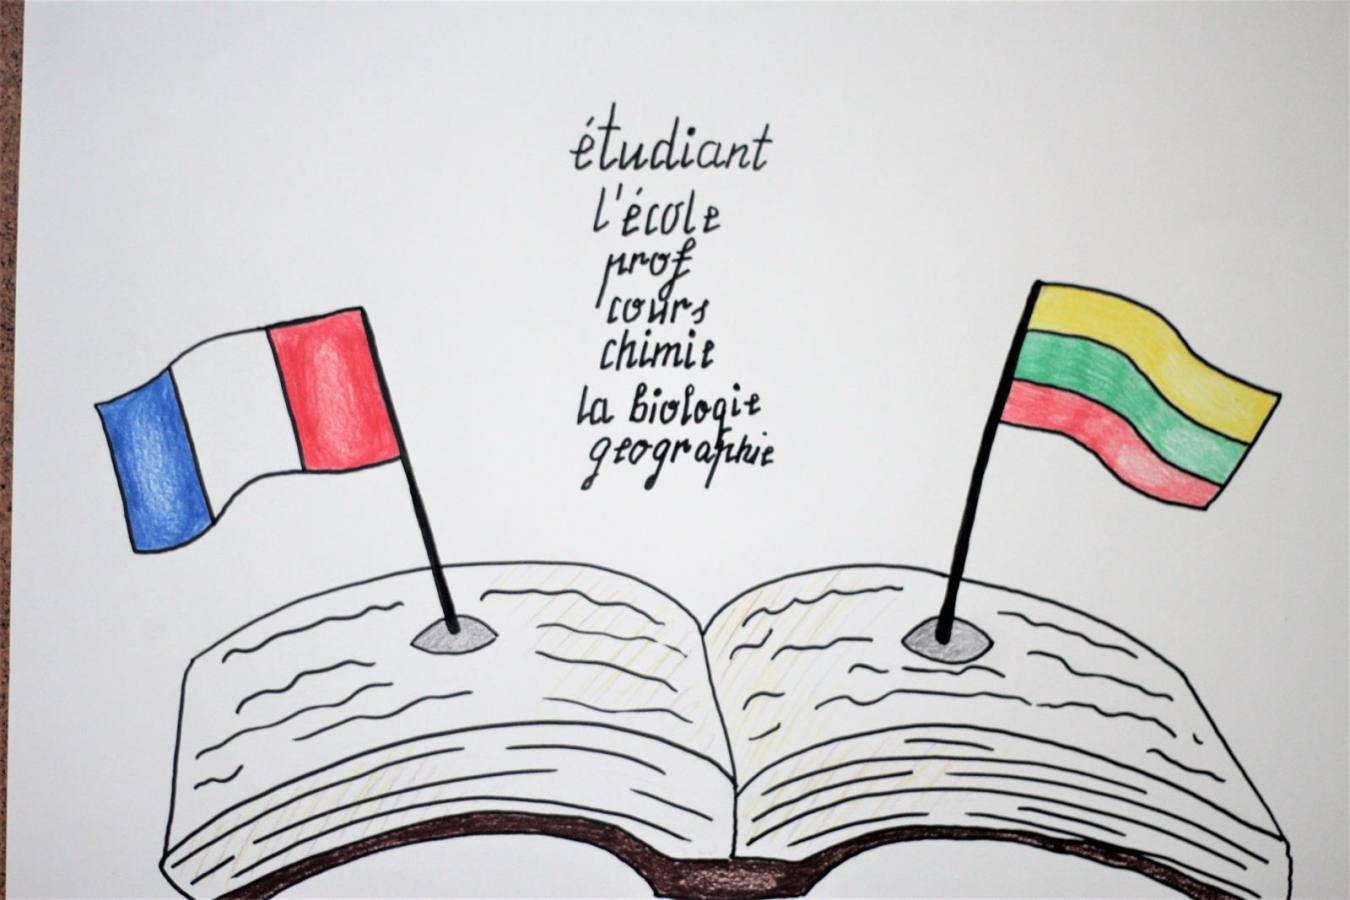 étudiant
l'école
prof
cours
chimie
la biologie
geographie